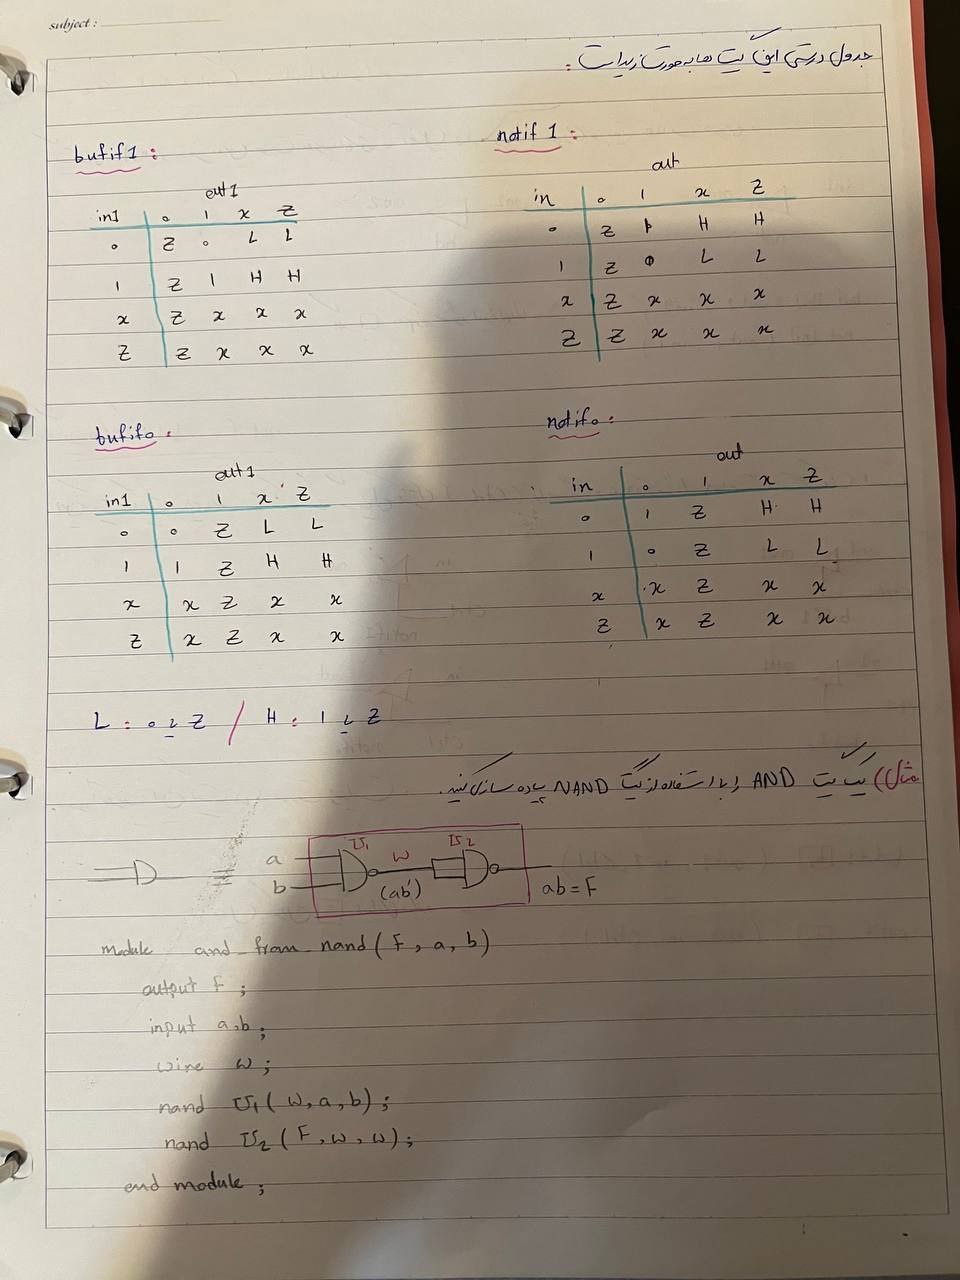 subject :
جدول درستی این گیت ها به صورت زیر است :
bufif1 :
out1
in1 0 1 x Z
0 Z 0 L L
1 Z 1 H H
x Z x x x
Z Z x x x
notif 1 :
out
in 0 1 x Z
0 Z 1 H H
1 Z 0 L L
x Z x x x
Z Z x x x
bufif0 :
out1
in1 0 1 x Z
0 0 Z L L
1 1 Z H H
x x Z x x
Z x Z x x
notif0 :
out
in 0 1 x Z
0 1 Z H H
1 0 Z L L
x x Z x x
Z x Z x x
L : 0 یا Z / H : 1 یا Z
مثال) یک گیت AND را با استفاده از گیت NAND پیاده سازی کنید.
a b U1 w (ab)' U2 ab = F
module and_from_nand ( F , a , b )
output F ;
input a,b ;
wire w ;
nand U1 ( w, a, b ) ;
nand U2 ( F , w , w ) ;
end module ;